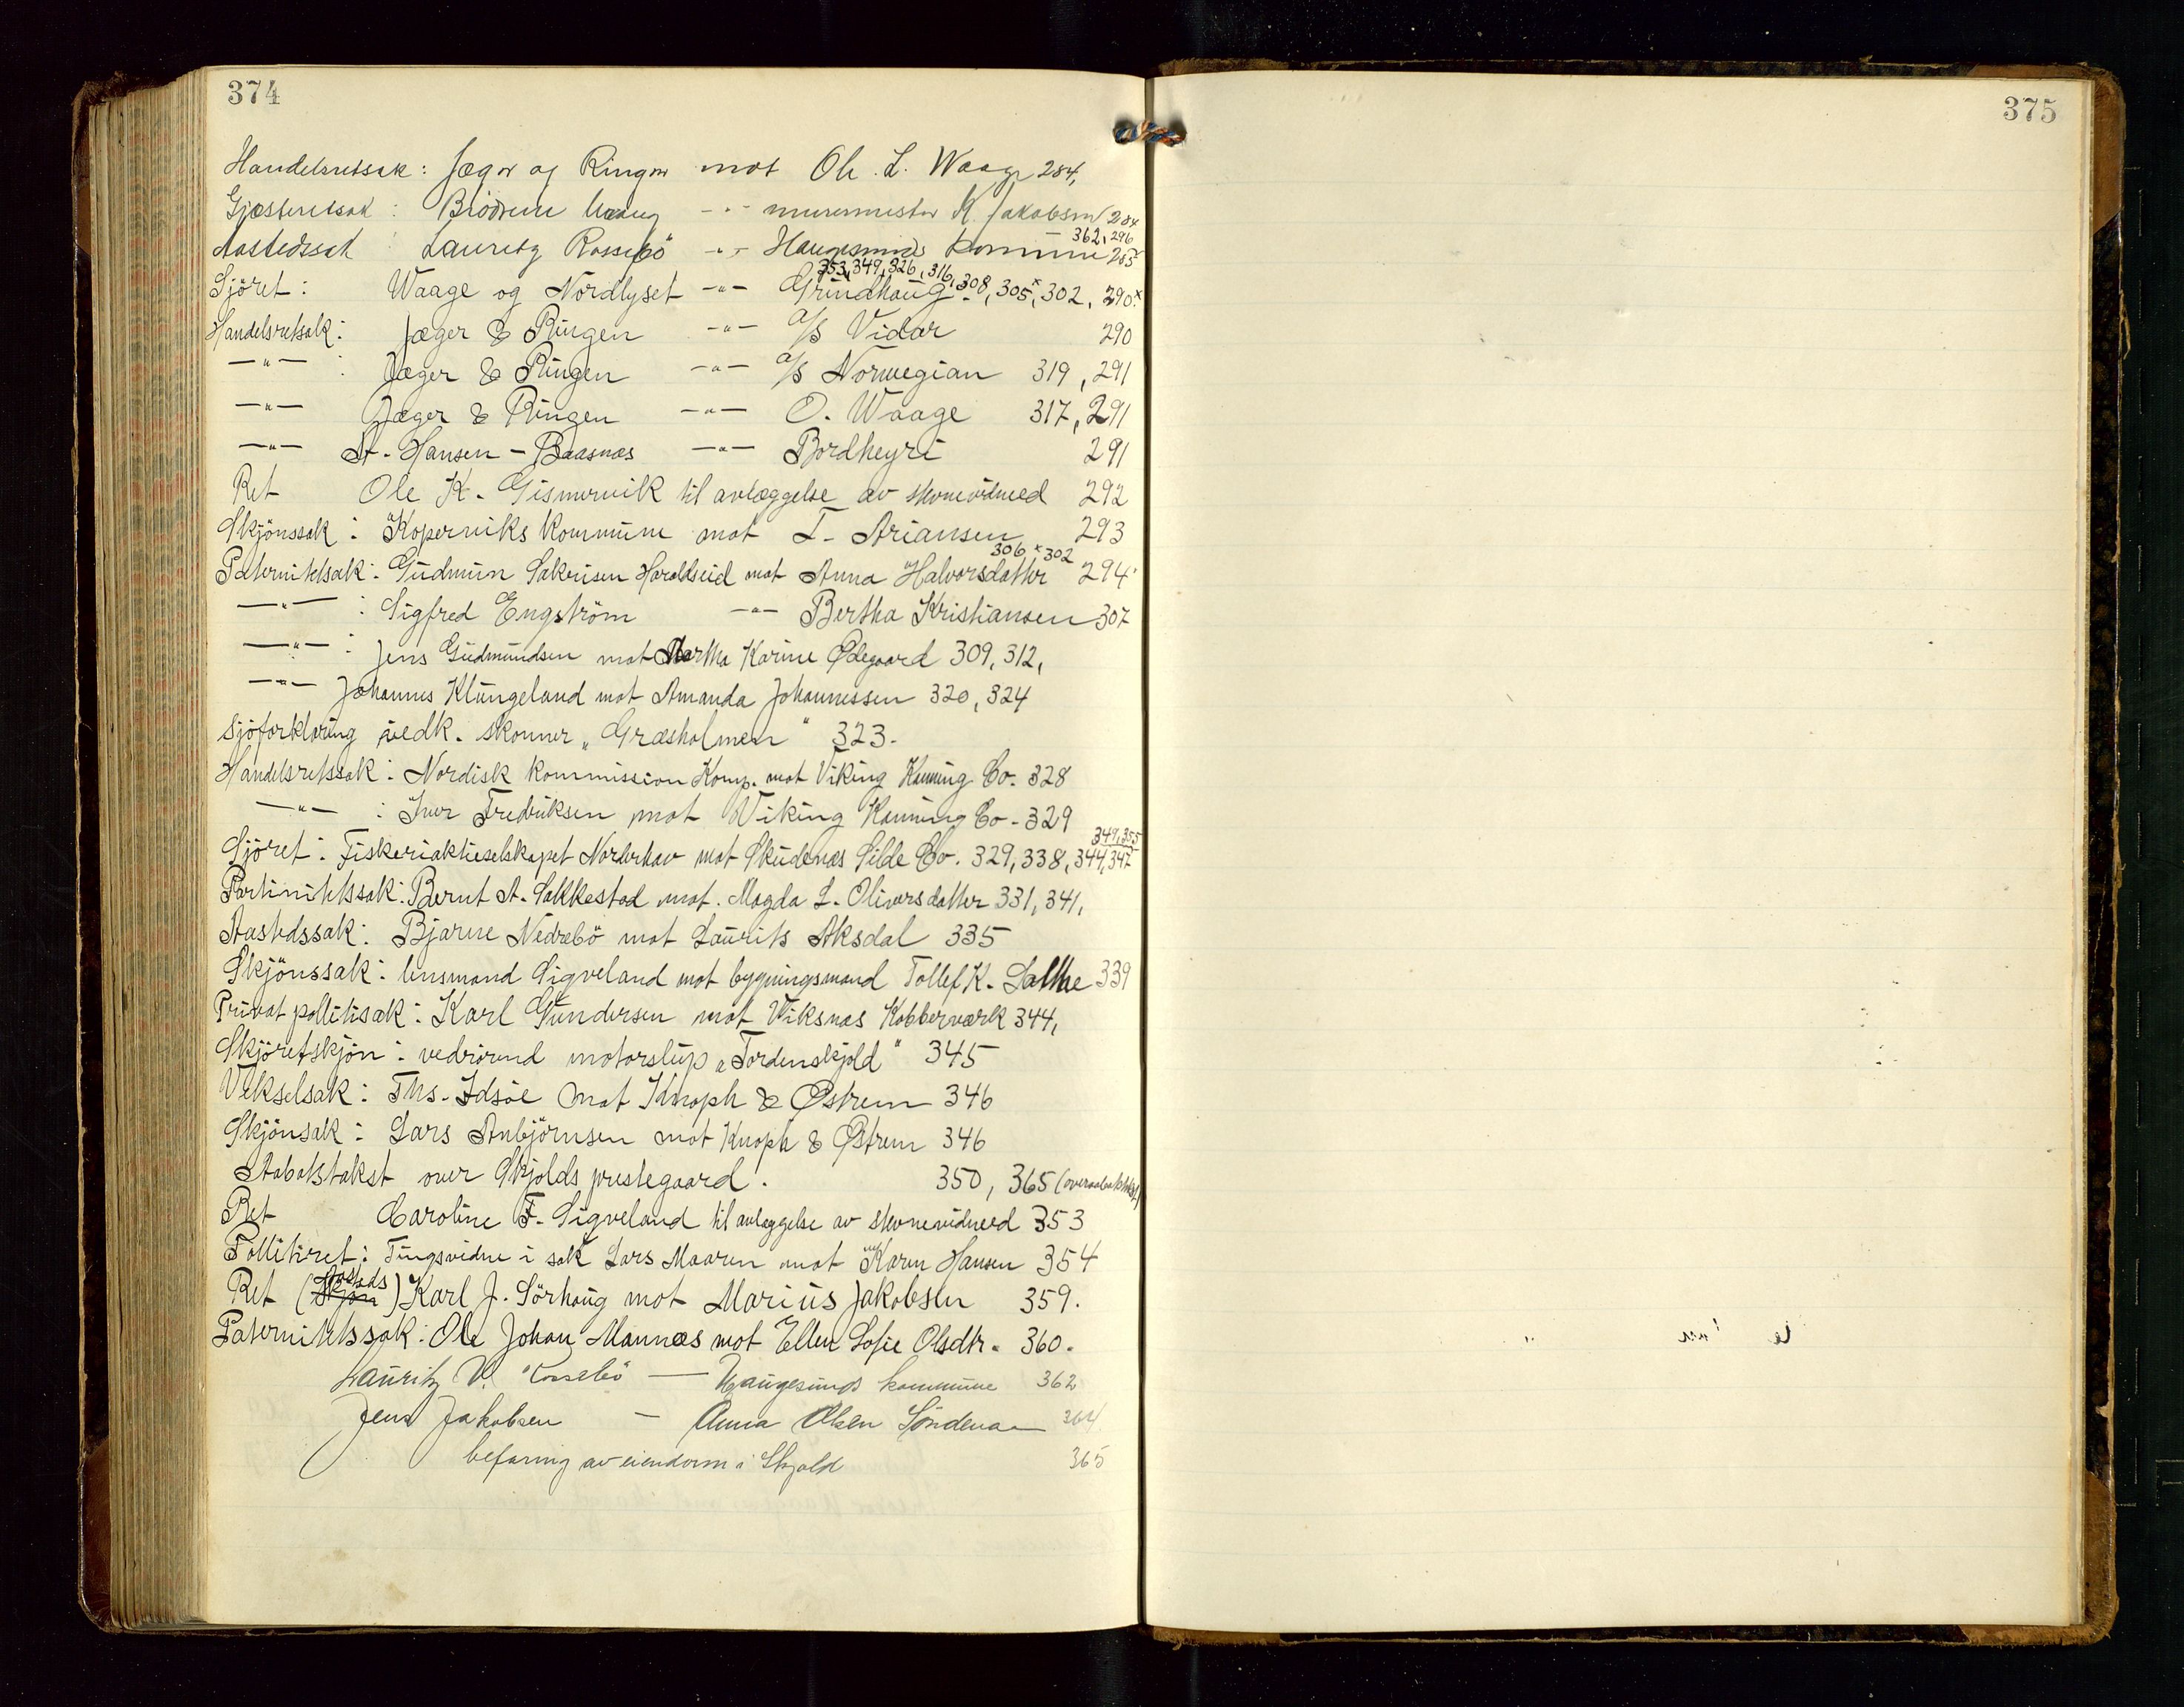 374
Handelsretsak: Jæger og Ringen mot Ole. L. Waage 284,
Gjesteretsak: Brödrene Haaug -"- murermester K. Jakobsen 284
362, 296
Aastedssak Lauritz Rossebö -"- Haugesunds Komune 285
353, 349, 326, 316,
Sjöret: Waage og Nordlyset -"- Grindhaug 308, 305x, 302, 290x
Handelsretsak: Jæger & Ringen -"- A/S Vidar 290
-"- : Jæger & Ringen -"- A/S Norwegian 319, 291
-"- Jæger & Ringen -"- O. Waage 317, 291
-"- A. Hansen - Baasnæs -"- Bordheyri 291
Ret Ole K. Gismervik til avlæggelse av stevnevidneed 292
Skjönssak: Koperviks Kommune mot T. Ariansen 293
306 x 302
Paternitetsak: Gudmun Sakrisen Haraldseid mot Anna Halvorsdatter 294
-"- : Sigfred Engström -"- Bertha Kristiansen 307
-"- : Jens Gudmundsen mot Martha Karine Ødegaard 309, 312,
-"- Johannes Klungeland mot Amanda Johannessen 320, 324
Sjöforklaring vedk. skonner "Græsholmen" 323.
Handelsretssak: Nordisk Kommission Komp. mot Viking Kanning Co. 328
-"- : Iver Fredriksen mot Viking Kanning Co. 329
349, 355
Sjöret: Fiskeriaktieselskapet Norderhav mot Skudenæs Silde Co. 329, 338, 344, 347
Partinitetssak: Bernt A. Sakkestad mot. Magda L. Oliversdatter 331, 341,
Aastedssak: Bjarne Nedrebö mot Laurits Aksdal 335
Skjönssak: lensmand Sigveland mot bygningsmand Tollef K. Lothe 339
Privat pollitisak: Karl Gundersen mot Viksnæs Kobberværk 344,
Skjöretskjön: vedrörend motorslup "Tordenskjold" 345
Vekselsak: Ths. Idsöe mot Knoph & Østrem 346
Skjönsak: Lars Anbjörnsen mot Knoph & Østrem 346
Aabotstakst over Skjolds prestegaard. 350, 365 (overaabotstakst)
Ret Caroline F. Sigveland til avlæggelse av stevnevidneed 353
Pollitiret: Tingsvidne i sak Lars Maaren mot Karen Hansen 354
Aasteds
Ret (Skjön) Karl J. Sörhaug mot Marius Jakobsen 359.
Paternitetssak: Ole Johan Mannæs mot Ellen Sofie Olsdtr. 360.
Lauritz V. Rossebö — Haugesunds kommune 362
Jens Jakobsen - Anna Olsen Söndenaa 364
befaring av eiendom i Skjold 365
375